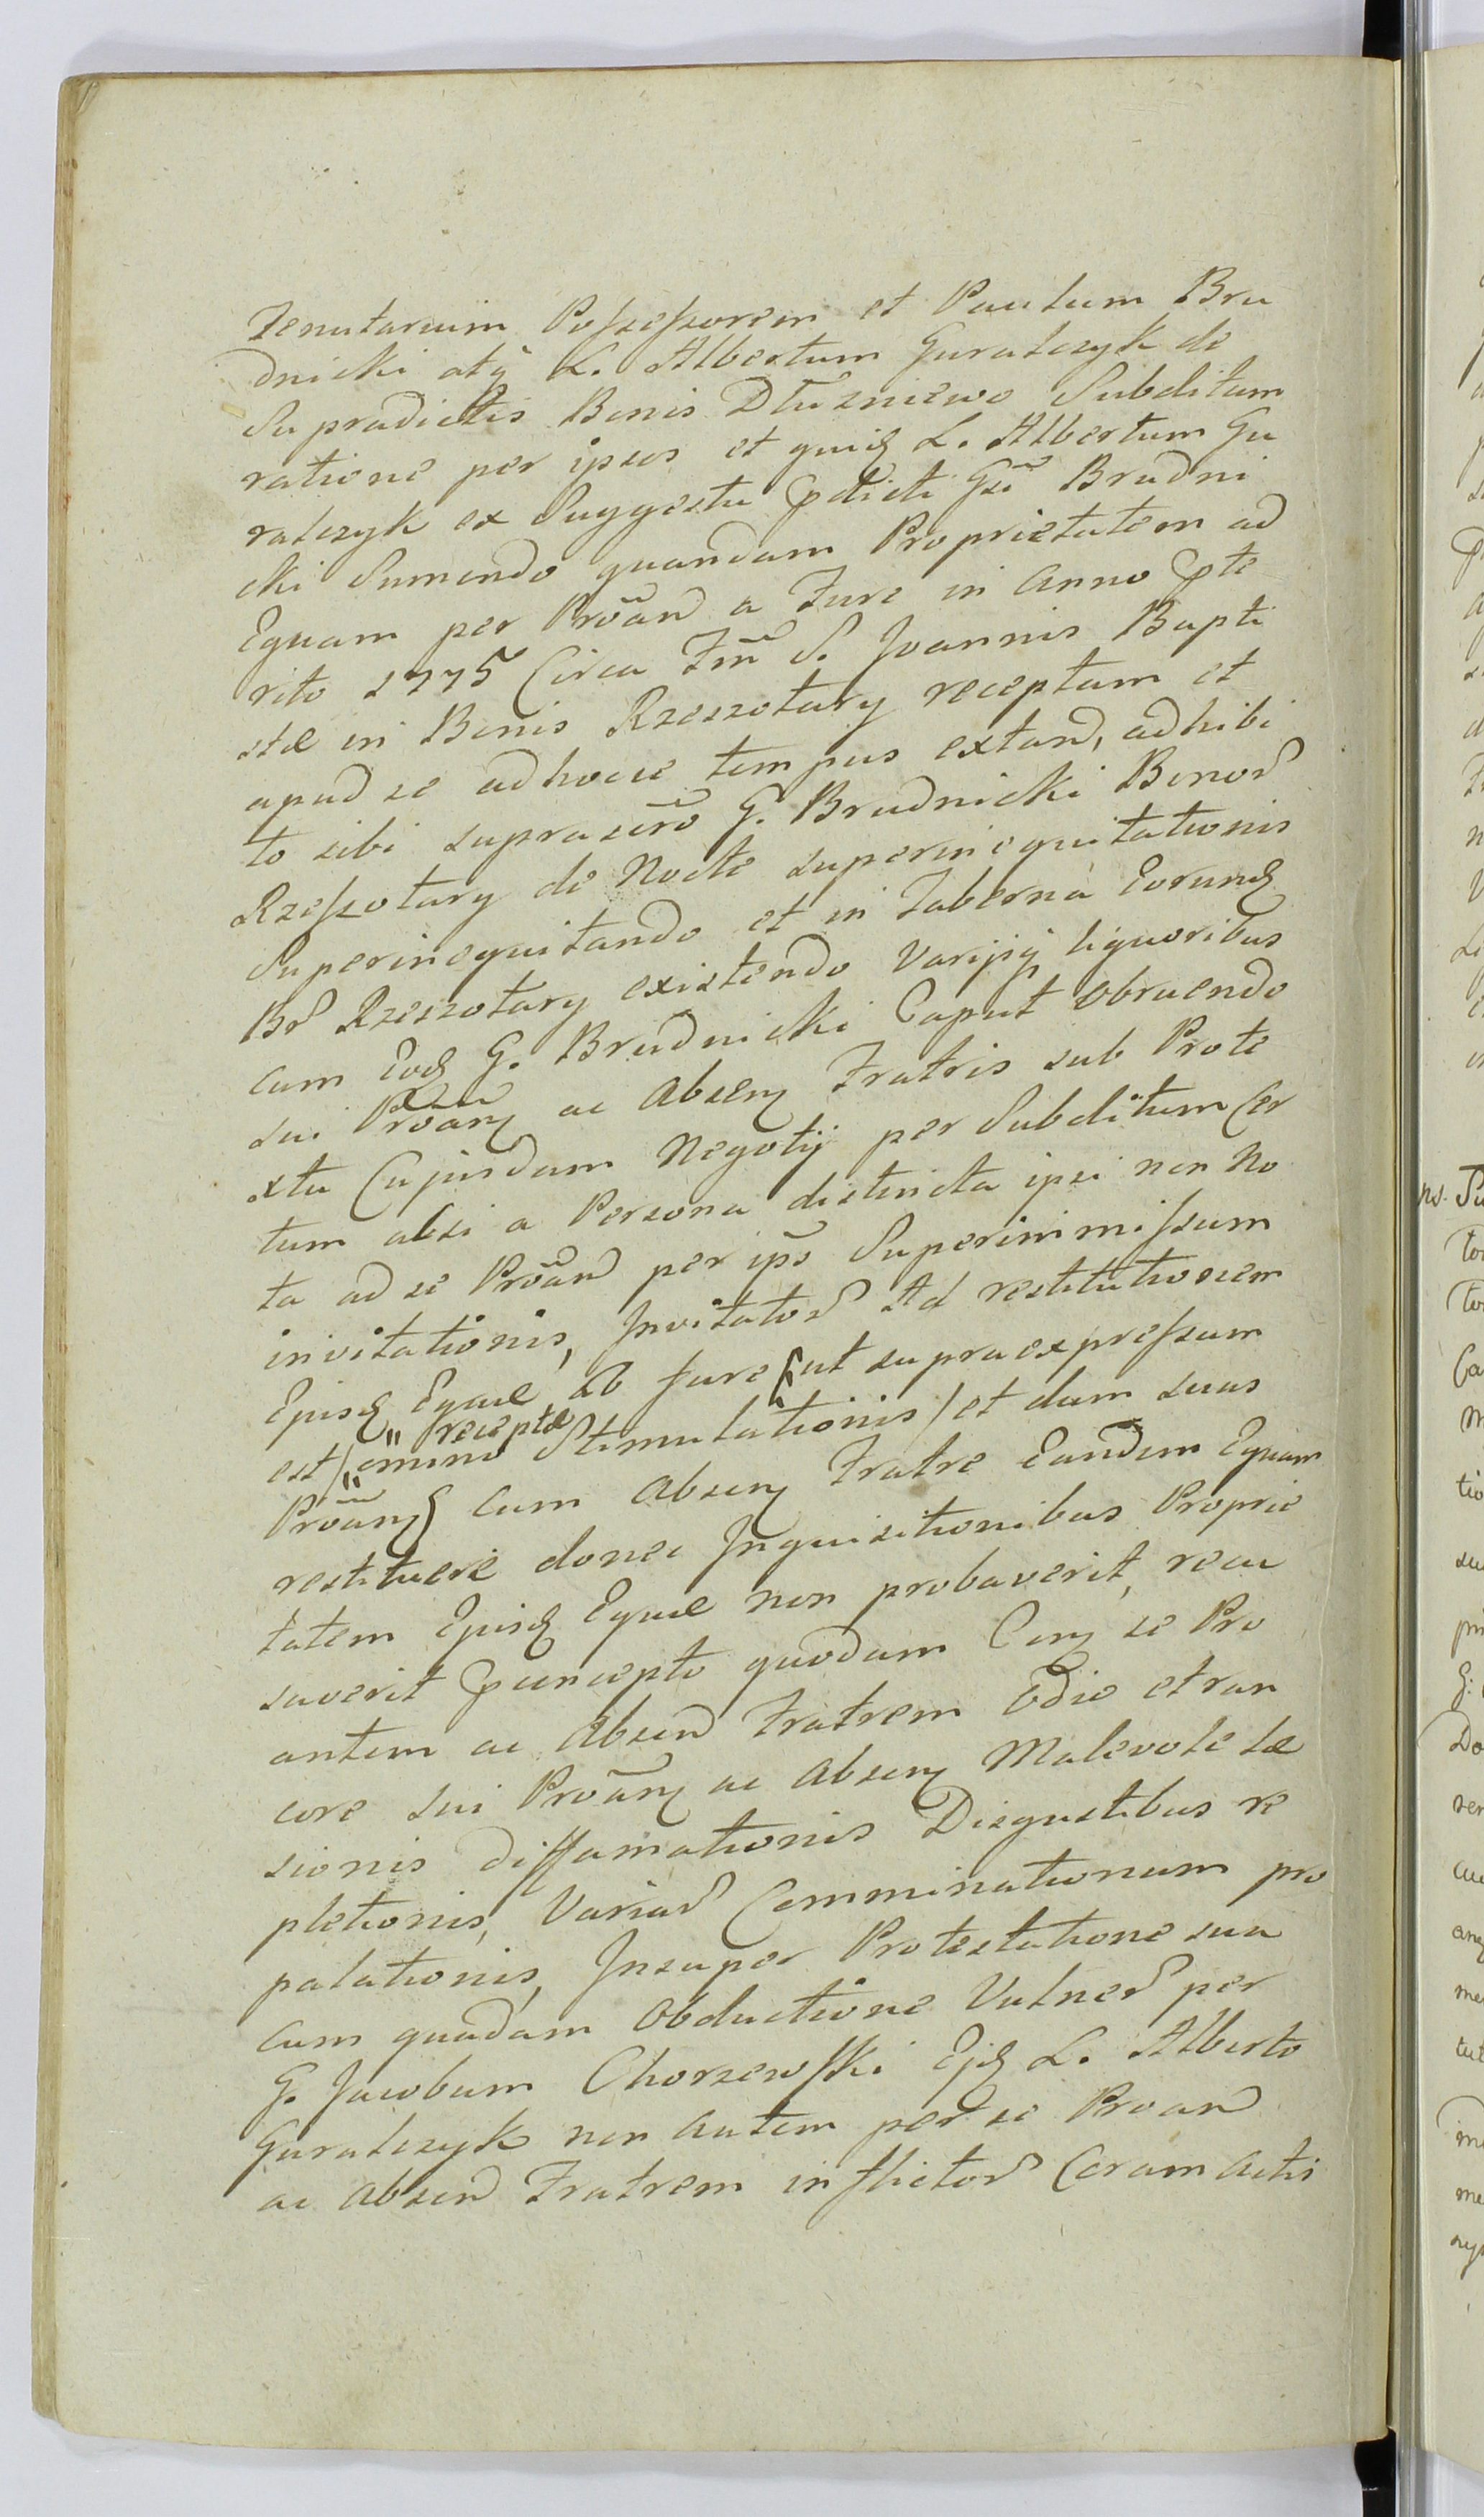 Tenutarium Possessorem et Paulum Bru
dnicki atq̃ L. Albertum Guralczyk de
Supradictis Bonis Dłużniewo Subditum
ratione per ipsos et quidę L. Albertum Gu
ralczyk ex Suggestu pdicti Gsi Brudni
cki Sumendo quandam Proprietatem ad
Equam per Prõan a Fure in Anno pte
rito 1775 Circa Fm̃ S. Joannis Bapti
stæ in Bonis Rzeszotary receptam et
apud se adhocce tempus extan, adhibi
to sibi suprascr̃o G. Brudnicki Bonor
Rzeszotary de Nocte superinequitationis
Superinequitando et in Taberna Eorund
Br Rzeszotary existendo Varijsq̃ liquoribus
cum Eod G. Brudnicki Caput obruendo
sui Prõan ac Absen Fratris sub Prote
xtu Cujusdam Negotij per Subditum Cer
tum absi a Persona distincta ipsi non No
ta ad se Prõan per ips̃ Superimmissum
invitationis, Invitator Ad restitutionem
Ejusd Equæ Ab Fure ut supraexpressum
est receptæ omino Stimulationis et dum suus
Prõan cum Absen Fratre Eandem Equam
restituere donec Inquisitionibus Proprie
tatem Ejusd Equæ non probaverit, recu
saverit pconcepto quodam Con se Pro
antem ac Absen Fratrem Odio et ran
core sui Prõan ac Absen Malevole læ
sionis diffamationis Disgustibus re
pletionis, Variar Comminationum pro
palationis, Insuper Protestatione sua
cum quadam Obductione Vulner per
G. Jacobum Chorzewski Ejd L. Alberto
Guralczyk non autem per se Proan
ac Absen Fratrem inflictor Coram Actis